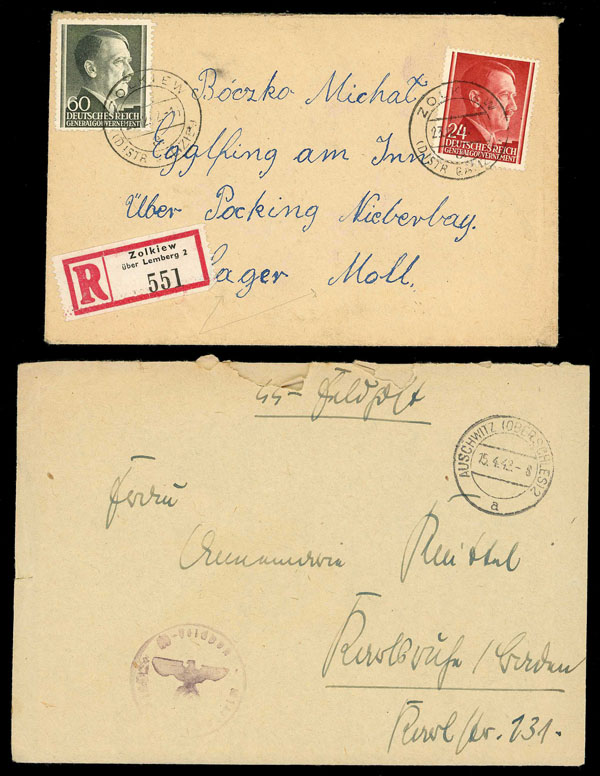 60
DEUTSCHES REICH
GENERALGOUVERNEMENT
24
DEUTSCHES REICH
GENERALGOUVERNEMENT
ZOLKIEW
(DISTR. GALIZIEN)
ZOLKIEW
23.
(DISTR. GALIZ
Bóczko Michał
Egglfing am Inn
Über Pocking Nieberbay.
Lager Moll.
R
Zolkiew
über Lemberg 2
551
SS-Feldpost
AUSCHWITZ (OBERSCHLES) 2
15.4.43.-8
a
Frau
Annemarie Knittel
Karlsruhe / Baden
Karlstr. 131.